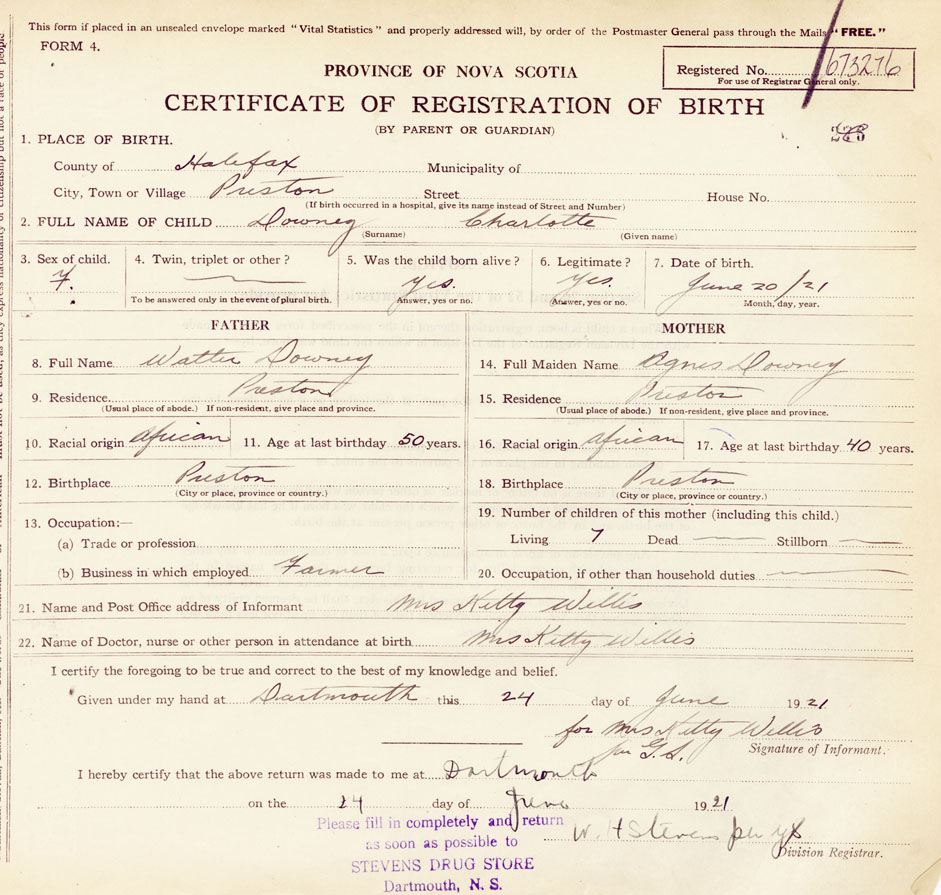 This form if placed in an unsealed envelope marked "Vital Statistics" and properly addressed will, by order of the Postmaster General pass through the Mails "FREE."
FORM 4.
PROVINCE OF NOVA SCOTIA
Registered No. 673276
For use of Registrar General only.
CERTIFICATE OF REGISTRATION OF BIRTH
(BY PARENT OR GUARDIAN)
1. PLACE OF BIRTH.
County of Halifax Municipality of
City, Town or Village Preston Street House No.
(If birth occurred in a hospital, give its name instead of Street and Number)
2. FULL NAME OF CHILD Downey Charlotte
(Surname) (Given name)
3. Sex of child. 4. Twin, triplet or other? 5. Was the child born alive? 6. Legitimate? 7. Date of birth.
F. yes. yes. June 20/21
To be answered only in the event of plural birth. Answer, yes or no. Answer, yes or no. Month, day, year.
FATHER MOTHER
8. Full Name Walter Downey 14. Full Maiden Name Agnes Downey
9. Residence Preston 15. Residence Preston
(Usual place of abode.) If non-resident, give place and province. (Usual place of abode.) If non-resident, give place and province.
10. Racial origin African 11. Age at last birthday 50 years. 16. Racial origin African 17. Age at last birthday 40 years.
12. Birthplace Preston 18. Birthplace Preston
(City or place, province or country.) (City or place, province or country.)
13. Occupation:— 19. Number of children of this mother (including this child.)
(a) Trade or profession Living 7 Dead — Stillborn —
(b) Business in which employed Farmer 20. Occupation, if other than household duties —
21. Name and Post Office address of Informant Mrs Kitty Willis
22. Name of Doctor, nurse or other person in attendance at birth Mrs Kitty Willis
I certify the foregoing to be true and correct to the best of my knowledge and belief.
Given under my hand at Dartmouth this 24 day of June 1921
for Mrs Kitty Willis
per G.S. Signature of Informant.
I hereby certify that the above return was made to me at Dartmouth
on the 24 day of June 1921
Please fill in completely and return
as soon as possible to
W. H Stevens per
STEVENS DRUG STORE
Division Registrar.
Dartmouth, N. S.